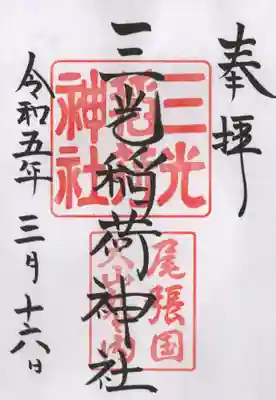 奉拝
三光稲荷神社
令和五年三月十六日
三光
稲荷
神社
尾張国
犬山城内